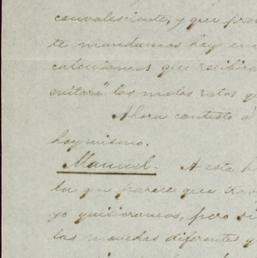 convalesciente, y que pron
te mandamos hoy en
calculamos que recibira
evitará los malos ratos q
Ahora contesto a
hoy mismo.
Manuel. A esta h
la que parece que
yo quisieramos, pero si
las monedas diferentes y